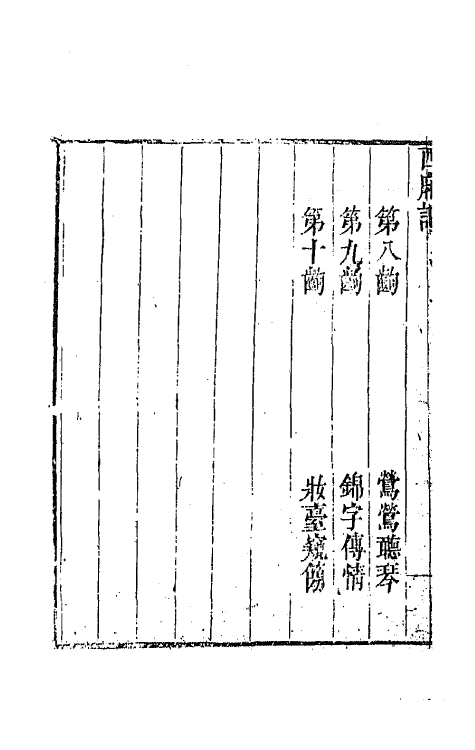 西廂記
第八齣 鶯鶯聽琴
第九齣 錦字傳情
第十齣 妝臺窺簡